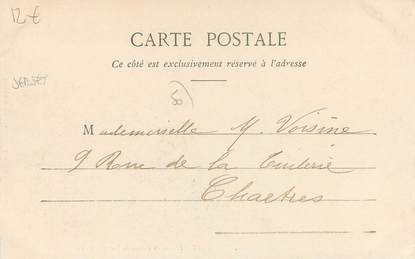 12€
CARTE POSTALE
Ce côté est exclusivement réservé à l'adresse
50
JERSEY
Mademoiselle M. Voisine
9 Rue de la Tuilerie
Chartres